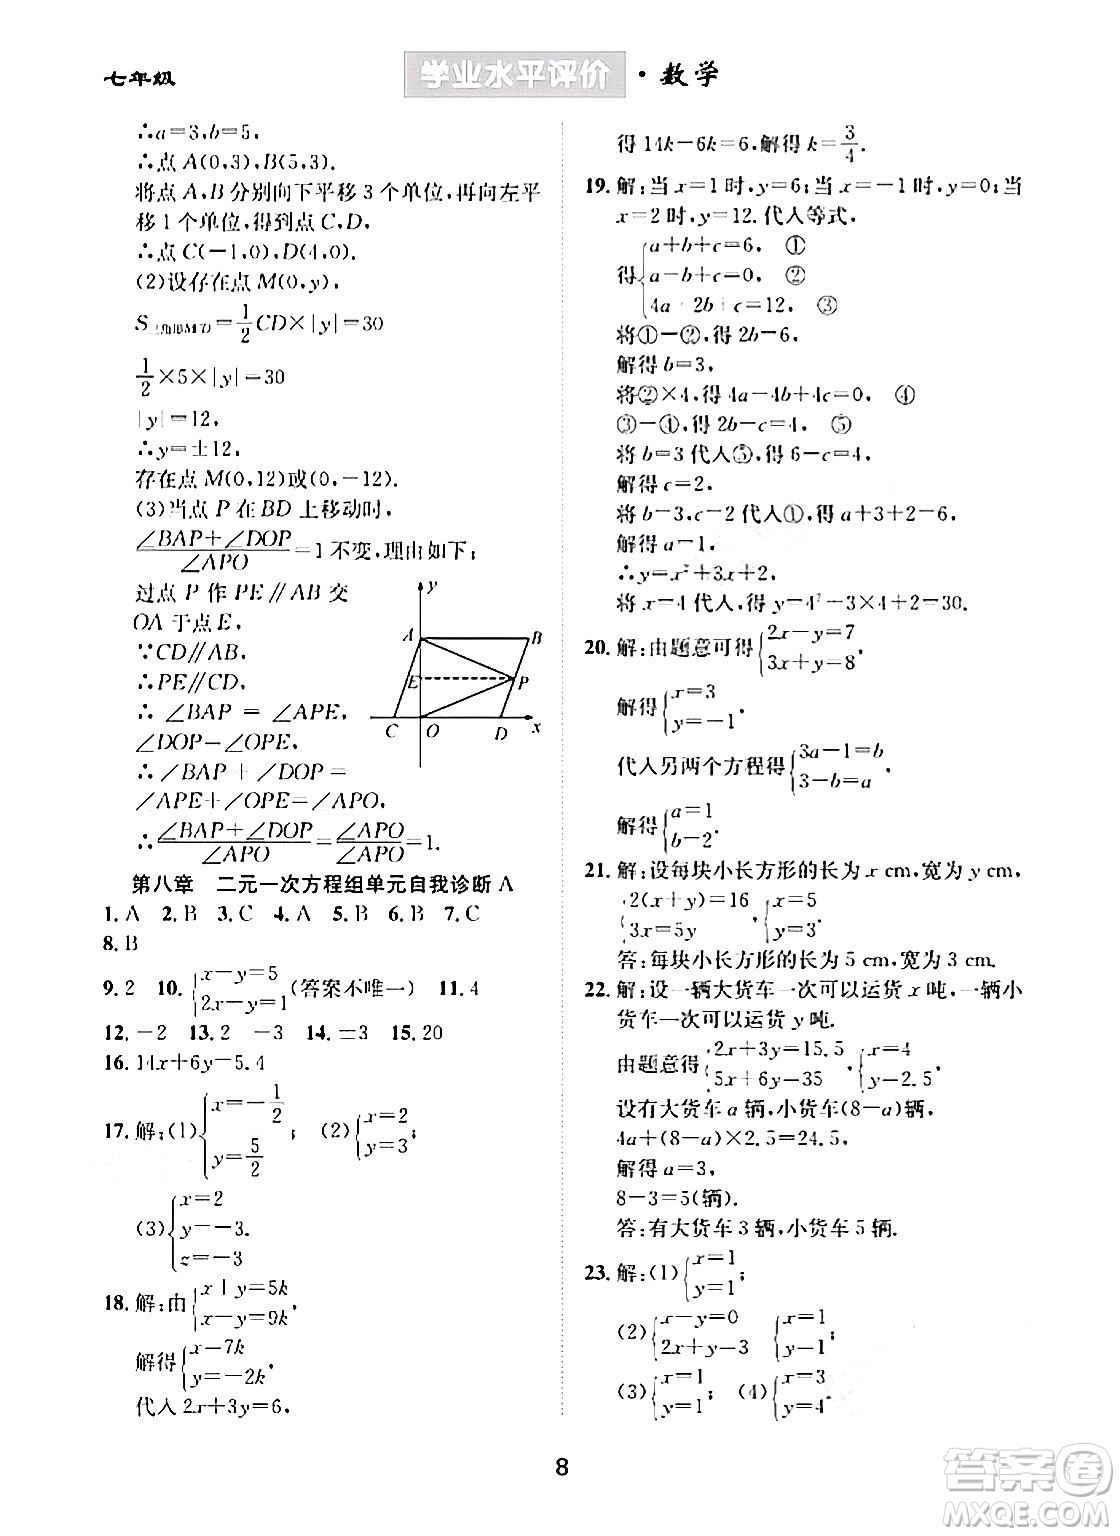 七年级
学业水平评价·数学
∴a=3,b=5,
∴点 A(0,3),B(5,3).
将点 A,B 分别向下平移 3 个单位,再向左平
移 1 个单位,得到点 C,D,
∴点 C(-1,0),D(4,0).
(2)设存在点 M(0,y),
S三角形MCD=1/2 CD×|y|=30
1/2×5×|y|=30
|y|=12,
∴y=±12,
存在点 M(0,12)或(0,-12).
(3)当点 P 在 BD 上移动时,
(∠BAP+∠DOP)/∠APO=1 不变,理由如下:
过点 P 作 PE∥AB 交
OA 于点 E,
∵CD∥AB,
∴PE∥CD,
∴ ∠BAP = ∠APE,
∠DOP=∠OPE,
∴ ∠BAP + ∠DOP =
∠APE+∠OPE=∠APO,
∴ (∠BAP+∠DOP)/∠APO=∠APO/∠APO=1.
y
A B
E P
C O D x
第八章 二元一次方程组单元自我诊断 A
1.A 2.B 3.C 4.A 5.B 6.B 7.C
8.B
9.2 10.{x-y=5 2x-y=1(答案不唯一) 11.4
12.-2 13.2 -3 14.=3 15.20
16.14x+6y=5.4
17.解:(1){x=-1/2 y=5/2; (2){x=2 y=4;
(3){x=2 y=-3. z=-3
18.解:由{x+y=5k x-y=9k,
解得{x=7k y=-2k,
代入 2x+3y=6,
得 14k-6k=6,解得 k=3/4.
19.解:当 x=1 时,y=6;当 x=-1 时,y=0;当
x=2 时,y=12.代入等式,
得{a+b+c=6, ①
a-b+c=0, ②
4a+2b+c=12, ③
将①-②,得 2b=6,
解得 b=3,
将②×4,得 4a-4b+4c=0, ④
③-④,得 2b-c=4, ⑤
将 b=3 代入⑤,得 6-c=4,
解得 c=2,
将 b=3,c=2 代入①,得 a+3+2=6,
解得 a=1,
∴y=x²+3x+2,
将 x=4 代入,得 y=4²+3×4+2=30.
20.解:由题意可得{2x-y=7 3x+y=8,
解得{x=3 y=-1.
代入另两个方程得{3a-1=b 3-b=a,
解得{a=1 b=2.
21.解:设每块小长方形的长为 x cm,宽为 y cm,
{2(x+y)=16 3x=5y,{x=5 y=3.
答:每块小长方形的长为 5 cm,宽为 3 cm.
22.解:设一辆大货车一次可以运货 x 吨,一辆小
货车一次可以运货 y 吨.
由题意得{2x+3y=15.5 5x+6y=35,{x=4 y=2.5.
设有大货车 a 辆,小货车(8-a)辆,
4a+(8-a)×2.5=24.5,
解得 a=3,
8-3=5(辆).
答:有大货车 3 辆,小货车 5 辆.
23.解:(1){x=1 y=1;
(2){x-y=0 2x+y=3 {x=1 y=1;
(3){x=1 y=1; (4){x=3 y=4.
8
答案圈
MXQE.COM